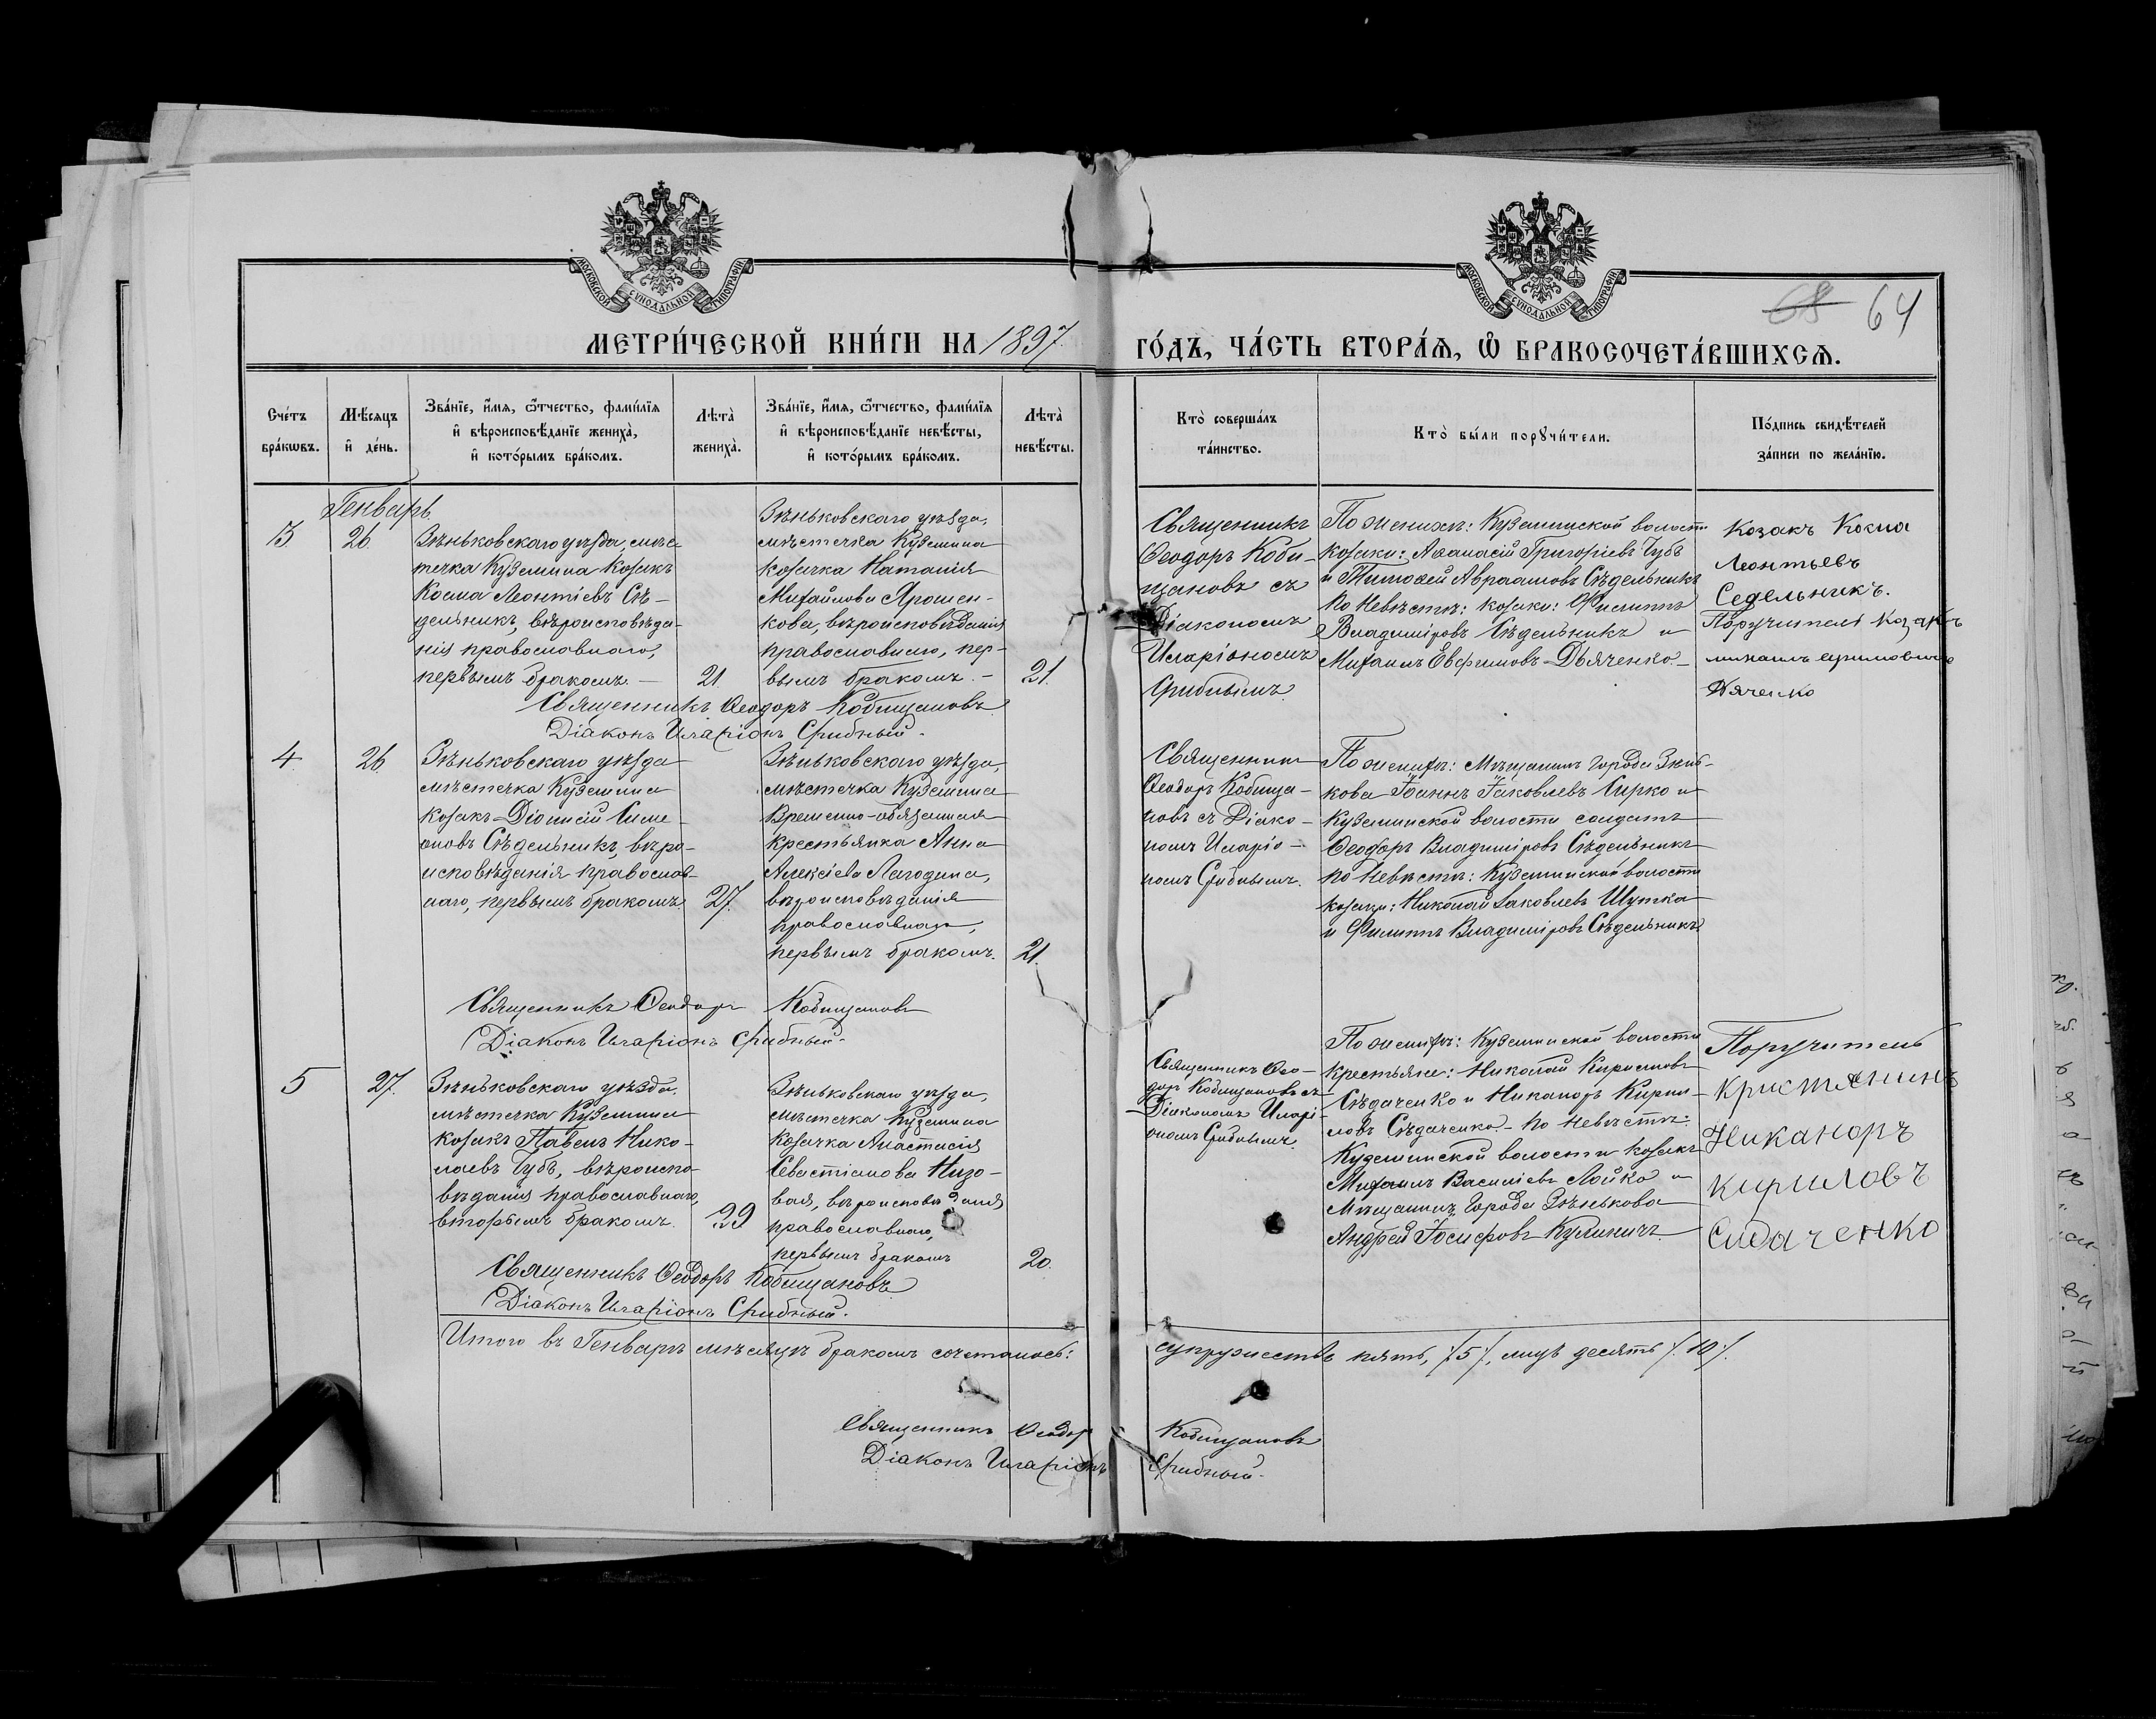 МОСКОВСКОЙ СѴНОДАЛЬНОЙ ТИПОГРАФІИ
МОСКОВСКОЙ СѴНОДАЛЬНОЙ ТИПОГРАФІИ
68 64
МЕТРИ́ЧЕСКОЙ КНИ́ГИ НА 1897 ГО́ДЪ, ЧА́СТЬ ВТОРА́Ѧ, Ѡ҆ БРАКОСОЧЕТА́ВШИХСѦ.
Сче́тъ бра́кѡвъ.
Мѣ́сѧцъ и҆ де́нь.
Зва́нїе, и҆́мѧ, ѻ҆́тчество, фами́лїѧ и҆ вѣроисповѣ́данїе жениха̀, и҆ кото́рымъ бра́комъ.
Лѣта̀ жениха̀.
Зва́нїе, и҆́мѧ, ѻ҆́тчество, фами́лїѧ и҆ вѣроисповѣ́данїе невѣ́сты, и҆ кото́рымъ бра́комъ.
Лѣта̀ невѣ́сты.
Кто̀ соверша́лъ та́инство.
Кто̀ бы́ли порꙋчи́тели.
По́дпись свидѣ́телей за́писи по жела́нїю.
Генварь
3
26
Зѣньковскаго уѣзда, мѣс-
течка Куземина козакъ
Косма Леонтіевъ Сѣ-
дельникъ, вѣроисповѣда-
нія православнаго,
первымъ бракомъ. —
21
Зѣньковскаго уѣзда,
мѣстечка Куземина
козачка Наталія
Михайлова Ярошен-
кова, вѣроисповѣданія
православнаго, пер-
вымъ бракомъ. —
21.
Священникъ
Ѳеодоръ Коби-
щановъ съ
Діакономъ
Иларіономъ
Срибнымъ
По женихѣ: Куземинской волости
козаки: Аѳанасій Григоріевъ Чубъ
и Тимоѳей Авраамовъ Сѣдельникъ
по невѣстѣ: козаки: Филиппъ
Владиміровъ Сѣдельникъ и
Михаилъ Евфимовъ Дьяченко. —
Козакъ Косма
Леонтьевъ
Седельникъ.
Поручителі Козакъ
михаилъ
Дяченко
Священникъ Ѳеодоръ Кобищановъ
Діаконъ Иларіонъ Срибный.
4
26
Зѣньковскаго уѣзда
мѣстечка Куземина
козакъ Діонисій Симе-
оновъ Сѣдельникъ, вѣро-
исповѣданія православ-
наго, первымъ бракомъ.
27.
Зѣньковскаго уѣзда,
мѣстечка Куземина
Временно-обязанная
крестьянка Анна
Алексіева Лагодина,
вѣроисповѣданія
православнаго,
первымъ бракомъ.
21.
Священникъ
Ѳеодоръ Кобища-
новъ съ Діако-
номъ Иларіо-
номъ Срибнымъ.
По женихѣ: Мѣщанинъ города Зѣнь-
кова Іоаннъ Іаковлевъ Сирко и
Куземинской волости солдатъ
Ѳеодоръ Владиміровъ Сѣдельникъ
по невѣстѣ: Куземинской волости
козаки: Николай Іаковлевъ Шутка
и Филиппъ Владиміровъ Сѣдельникъ
Священникъ Ѳеодоръ Кобищановъ
Діаконъ Иларіонъ Срибный.
5
27.
Зѣньковскаго уѣзда,
мѣстечка Куземина
козакъ Павелъ Нико-
лаевъ Чубъ, вѣроиспо-
вѣданія православнаго,
вторымъ бракомъ.
39
Зѣньковскаго уѣзда,
мѣстечка Куземина
козачка Анастасія
Севастіанова Низо-
вая, вѣроисповѣданія
православнаго,
первымъ бракомъ
20.
Священникъ Ѳео-
доръ Кобищановъ съ
Діакономъ Иларі-
ономъ Срибнымъ
По женихѣ: Куземинской волости
крестьяне: Николай Кириловъ
Сѣдаченко и Никаноръ Кирил-
ловъ Сѣдаченко. По невѣстѣ:
Куземинской волости козакъ
Михаилъ Василіевъ Лойко и
Мѣщанинъ города Зѣнькова
Андрей Іосифовъ Кулиничъ
Поручитель
кристянинъ
Никаноръ
Кириловъ
Сидаченко
Священникъ Ѳеодоръ Кобищановъ
Діаконъ Иларіонъ Срибный.
Итого въ Генварѣ мѣсяцѣ бракомъ сочеталось: супружествъ пять, /5/, лицъ десять /10/.
Священникъ Ѳеодоръ Кобищановъ
Діаконъ Иларіонъ Срибный.